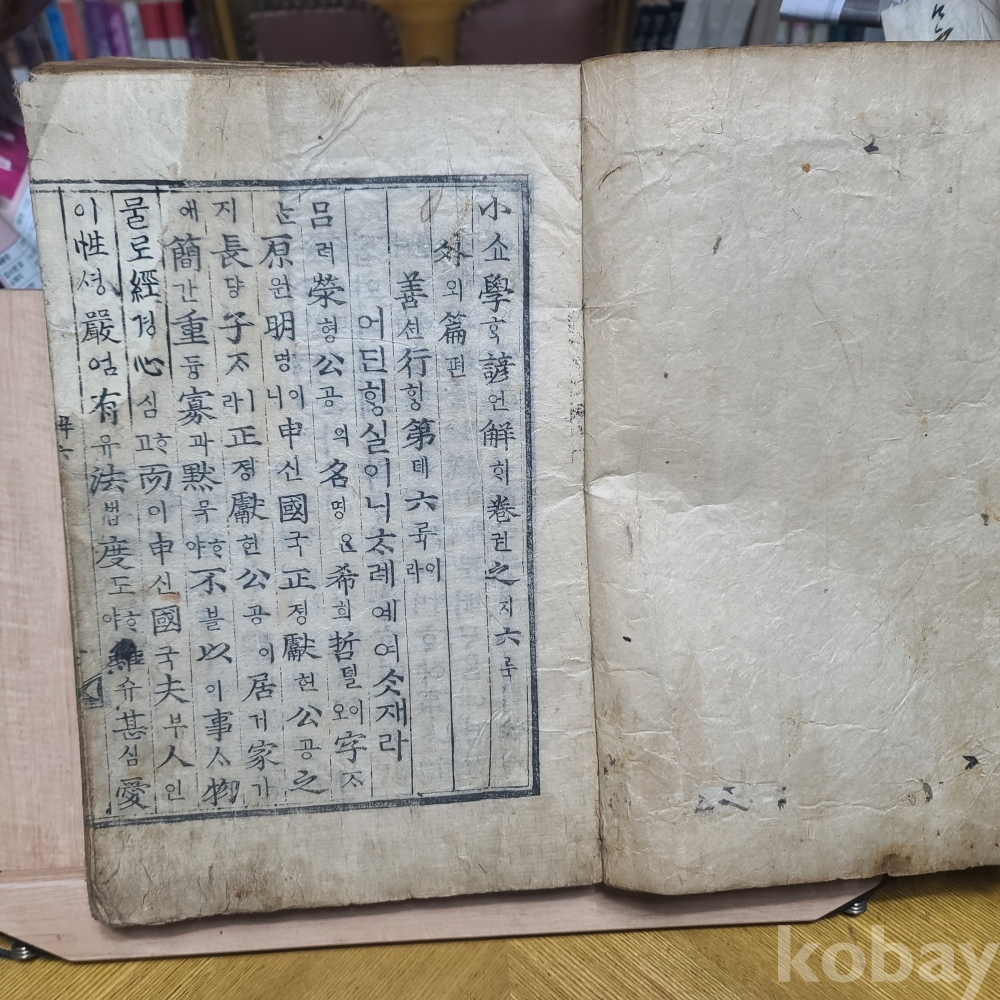 小쇼學ᄒᆞᆨ諺언解ᄒᆡ卷권之지六륙
外외篇편
善션行ᄒᆡᆼ第뎨六륙이라
어딘ᄒᆡᆼ실이니ᄎᆞ례예여ᄉᆞᆺ재라
呂려滎형公공의名명은希희哲텰이오字ᄌᆞ
ᄂᆞᆫ原원明명이니申신國국正졍獻헌公공之
지長댱子ᄌᆞㅣ라正졍獻헌公공이居거家가
애簡간重듕寡과黙묵ᄒᆞ야不블以이事ᄉᆞ物
믈로經경心심ᄒᆞ고而이申신國국夫부人인
이性셩嚴엄有유法법度도ᄒᆞ야雖슈甚심愛
kobay